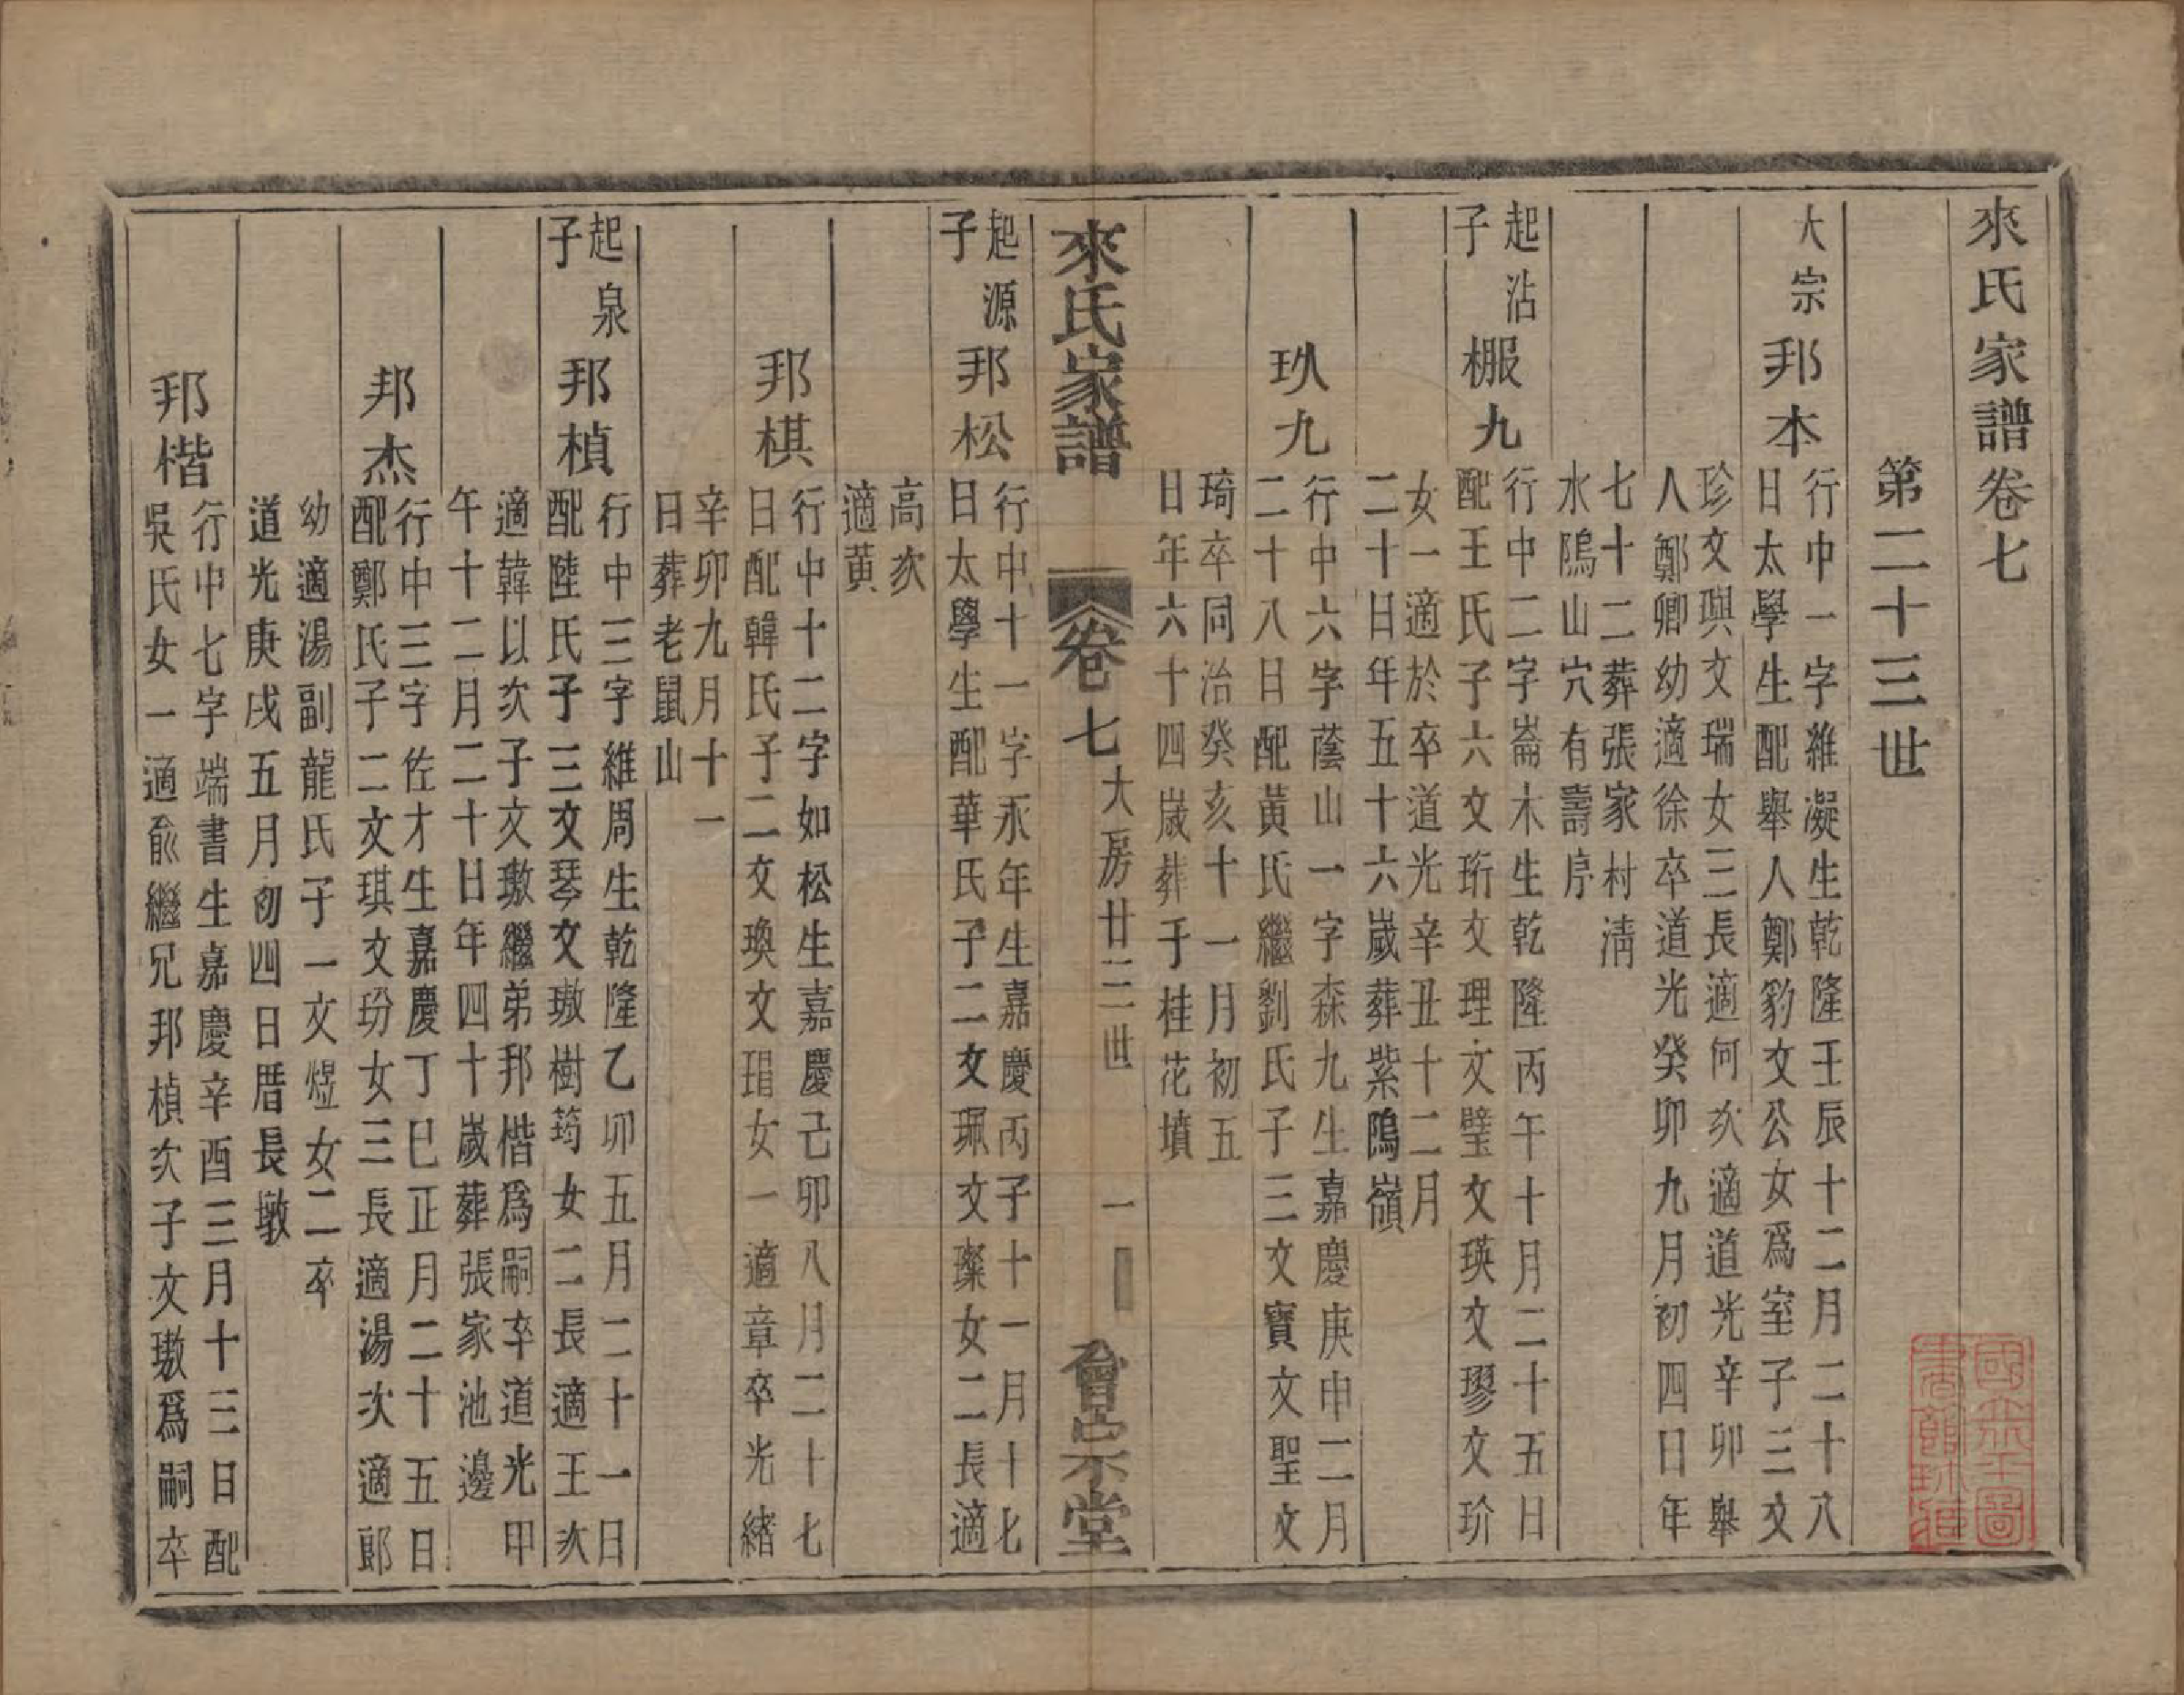 來氏家譜卷七
第二十三世
大宗
邦本
行中一字維凝生乾隆壬辰十二月二十八
日太學生配舉人鄭豹文公女爲室子三文
珍文璵文瑞女三長適何次適道光辛卯舉
人鄭卿幼適徐卒道光癸卯九月初四日年
七十二葬張家村淸
水隖山穴有壽序
起沾
子
棴九
行中二字崙木生乾隆丙午十月二十五日
配王氏子六文珩文理文璧文瑛文璆文玠
女一適於卒道光辛丑十二月
二十日年五十六歲葬紫隖嶺
玖九
行中六字蔭山一字森九生嘉慶庚申二月
二十八日配黃氏繼劉氏子三文寶文聖文
琦卒同治癸亥十一月初五
日年六十四歲葬于桂花墳
來氏家譜
卷七
大房廿三世
一
會宗堂
起源
子
邦松
行中十一字永年生嘉慶丙子十一月十七
日太學生配華氏子二文珮文璨女二長適
高次
適黃
邦棋
行中十二字如松生嘉慶己卯八月二十七
日配韓氏子二文瑍文琩女一適章卒光緒
辛卯九月十一
日葬老鼠山
起泉
子
邦楨
行中三字維周生乾隆乙卯五月二十一日
配陸氏子三文琴文璈樹筠女二長適王次
適韓以次子文璈繼弟邦楷爲嗣卒道光甲
午十二月二十日年四十歲葬張家池邊
邦杰
行中三字佐才生嘉慶丁巳正月二十五日
配鄭氏子二文琪文玢女三長適湯次適郎
幼適湯副龍氏子一文煜女二卒
道光庚戌五月初四日厝長墩
邦楷
行中七字端書生嘉慶辛酉三月十三日配
吳氏女一適兪繼兄邦楨次子文璈爲嗣卒